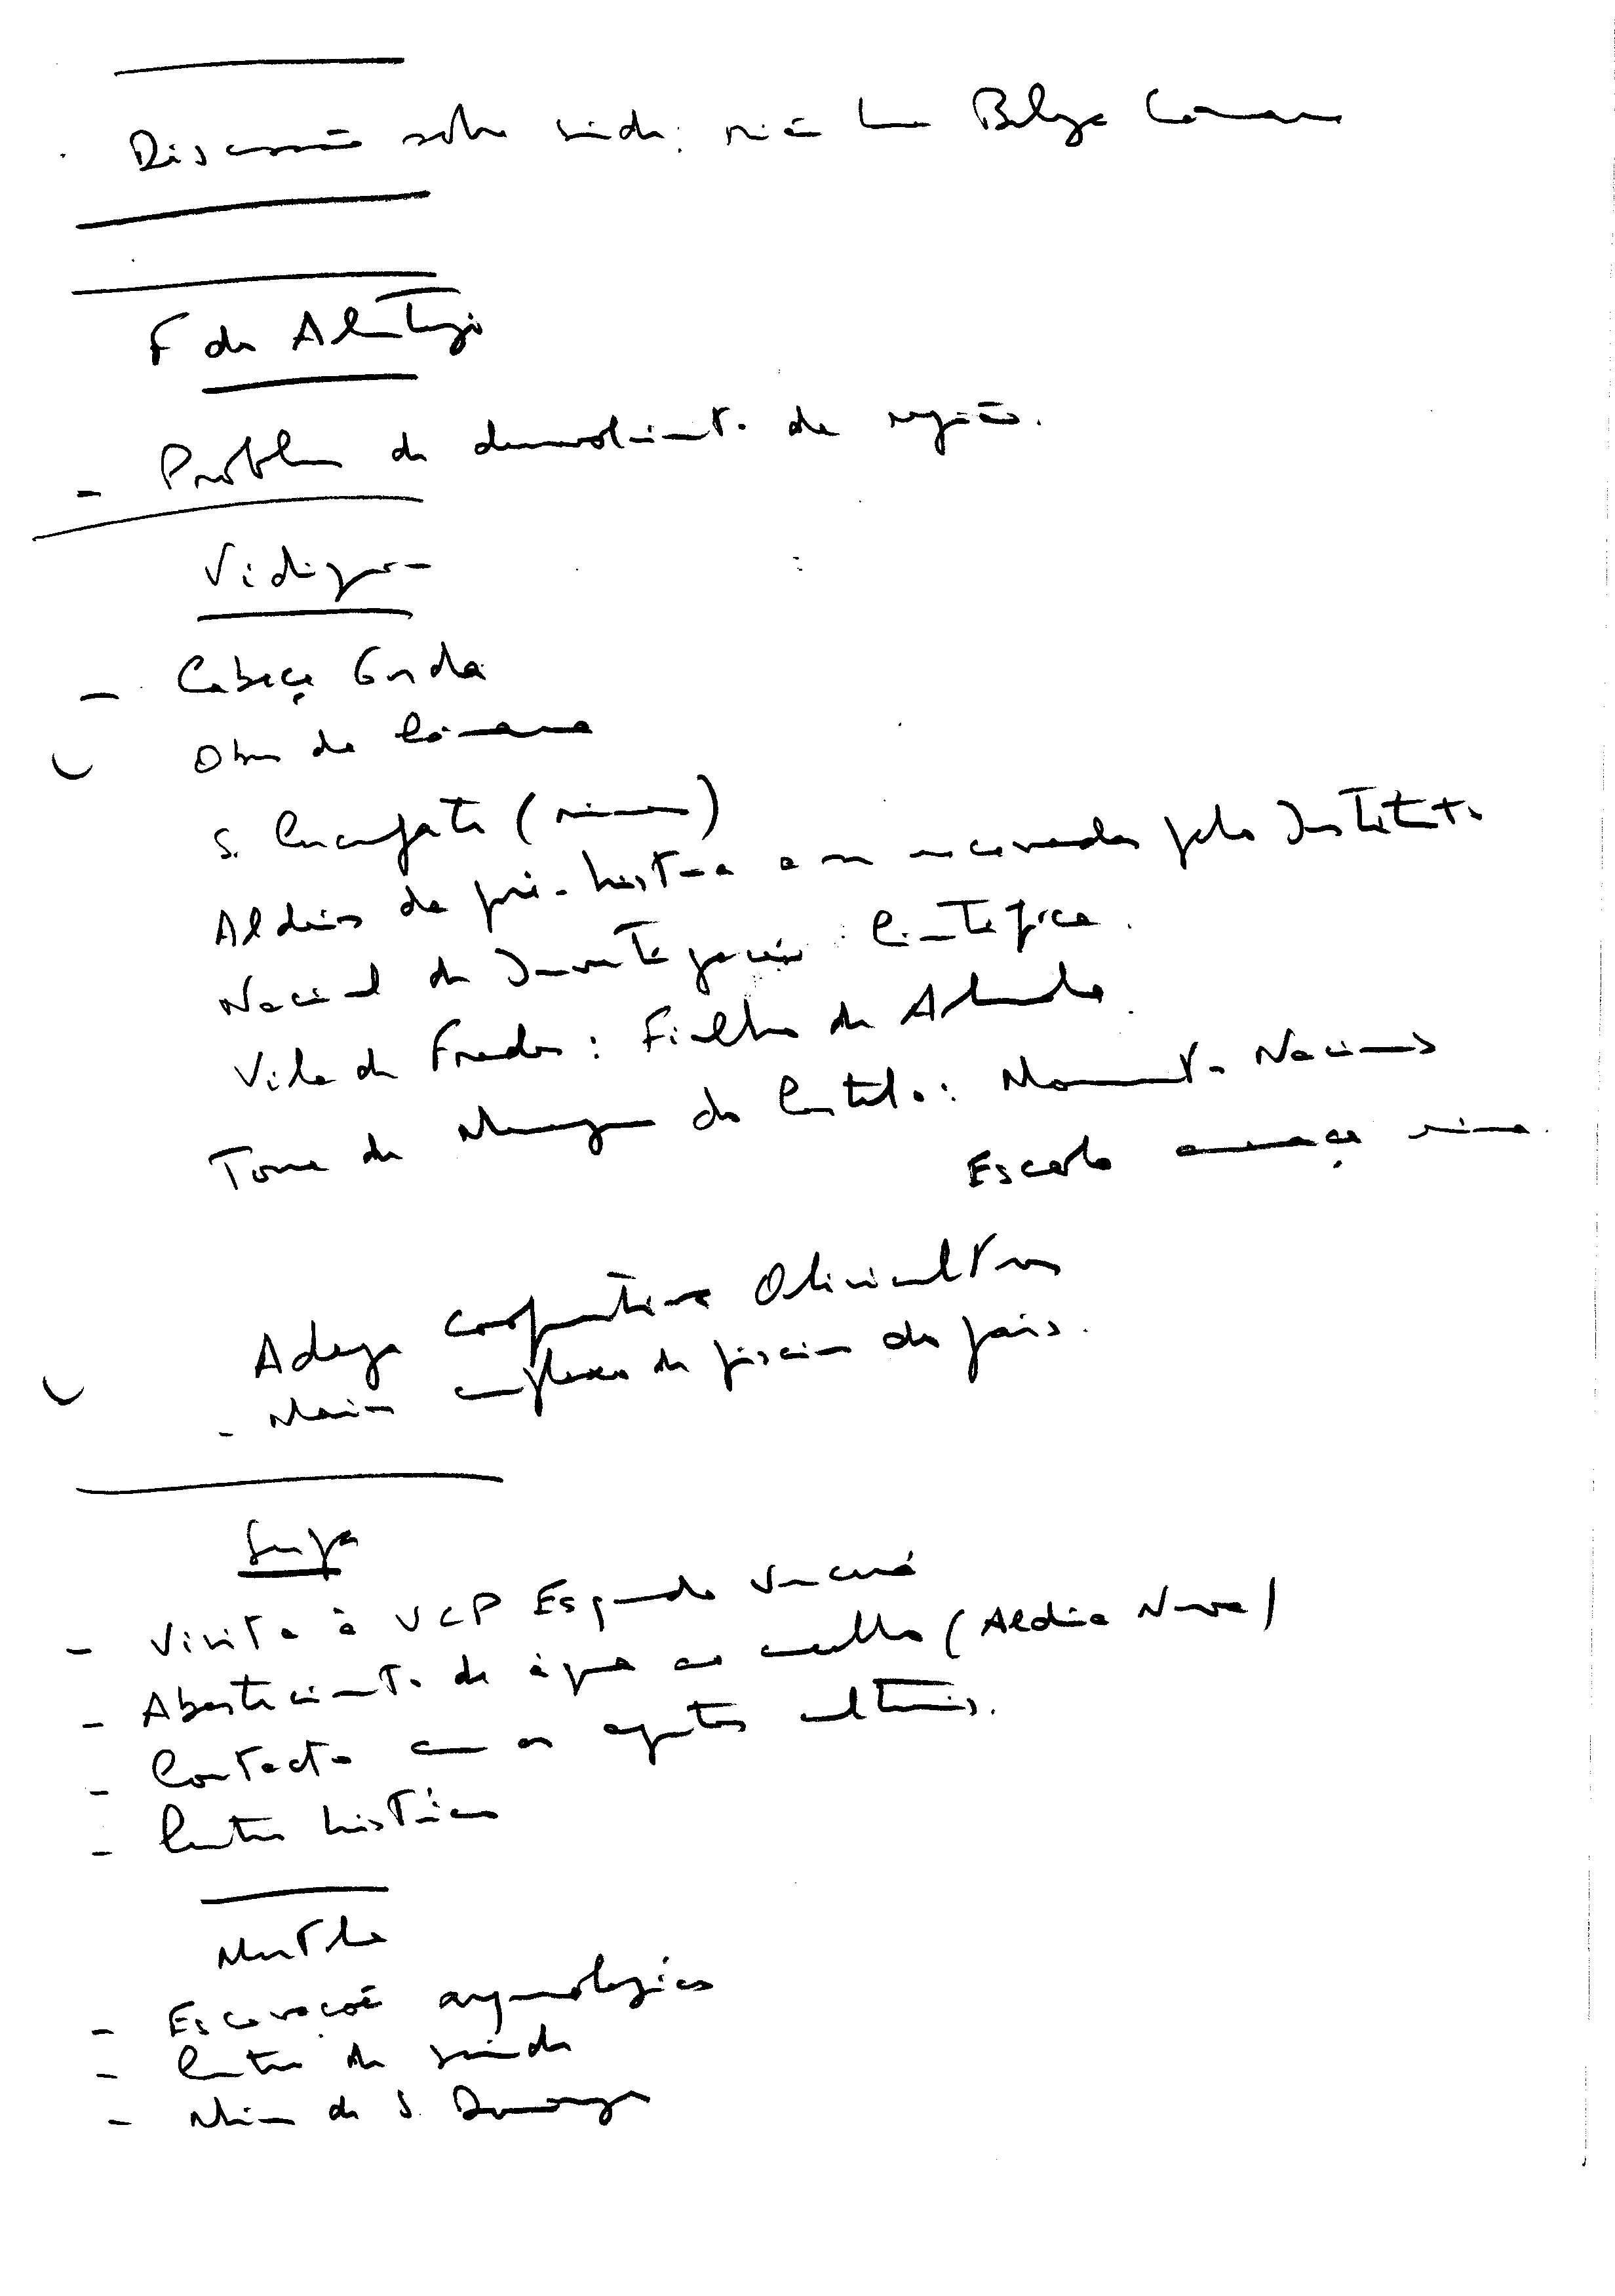 Discussão sobre saúde:
F do Alentejo
- Problemas de desenvolvimento da região.
Vidigueira
- Cabeça Gorda
Obras da Câmara
S. Cucufate (ruínas)
Aldeias da pré-história a ser escavadas pelo Instituto
Nacional de Investigação Científica.
Vila de Frades: Fialho de Almeida
Torre de Menagem do Castelo: Monumento Nacional
Escola ameaça ruína.
Adega cooperativa Olivicultores
- Maior complexo de piscinas do país.
Serpa
- Visita à UCP Esquerda Vencerá
- Abastecimento de água ao concelho (Aldeia Nova)
- Contacto com os agentes culturais.
- Centro histórico
Mértola
- Escavações arqueológicas
- Centro de saúde
- Mina de S. Domingos